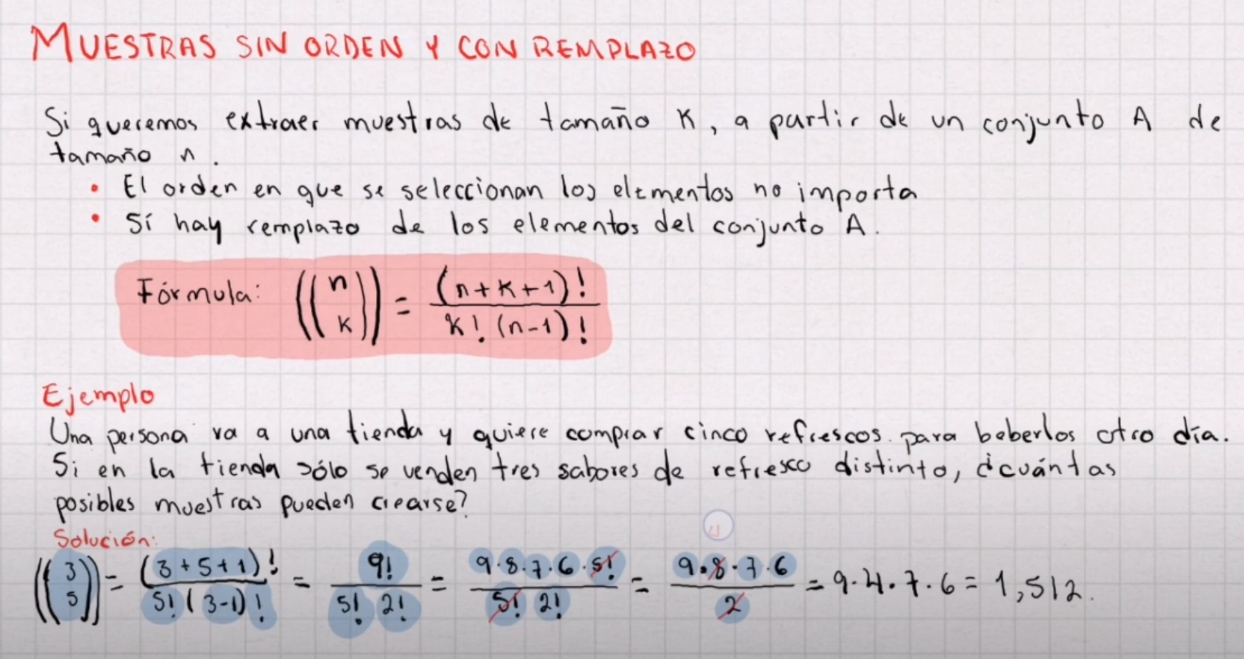 MUESTRAS SIN ORDEN Y CON REMPLAZO
Si queremos extraer muestras de tamaño K, a partir de un conjunto A de
tamaño n.
• El orden en que se seleccionan los elementos no importa
• Sí hay remplazo de los elementos del conjunto A.
Fórmula: ((n K)) = (n+K+1)! / K! (n-1)!
Ejemplo
Una persona va a una tienda y quiere comprar cinco refrescos para beberlos otro día.
Si en la tienda sólo se venden tres sabores de refresco distinto, ¿cuántas
posibles muestras pueden crearse?
Solución:
((3 5)) = (3+5+1)! / 5! (3-1)! = 9! / 5! 2! = 9·8·7·6·5! / 5! 2! = 9·8·7·6 / 2 = 9·4·7·6 = 1,512.